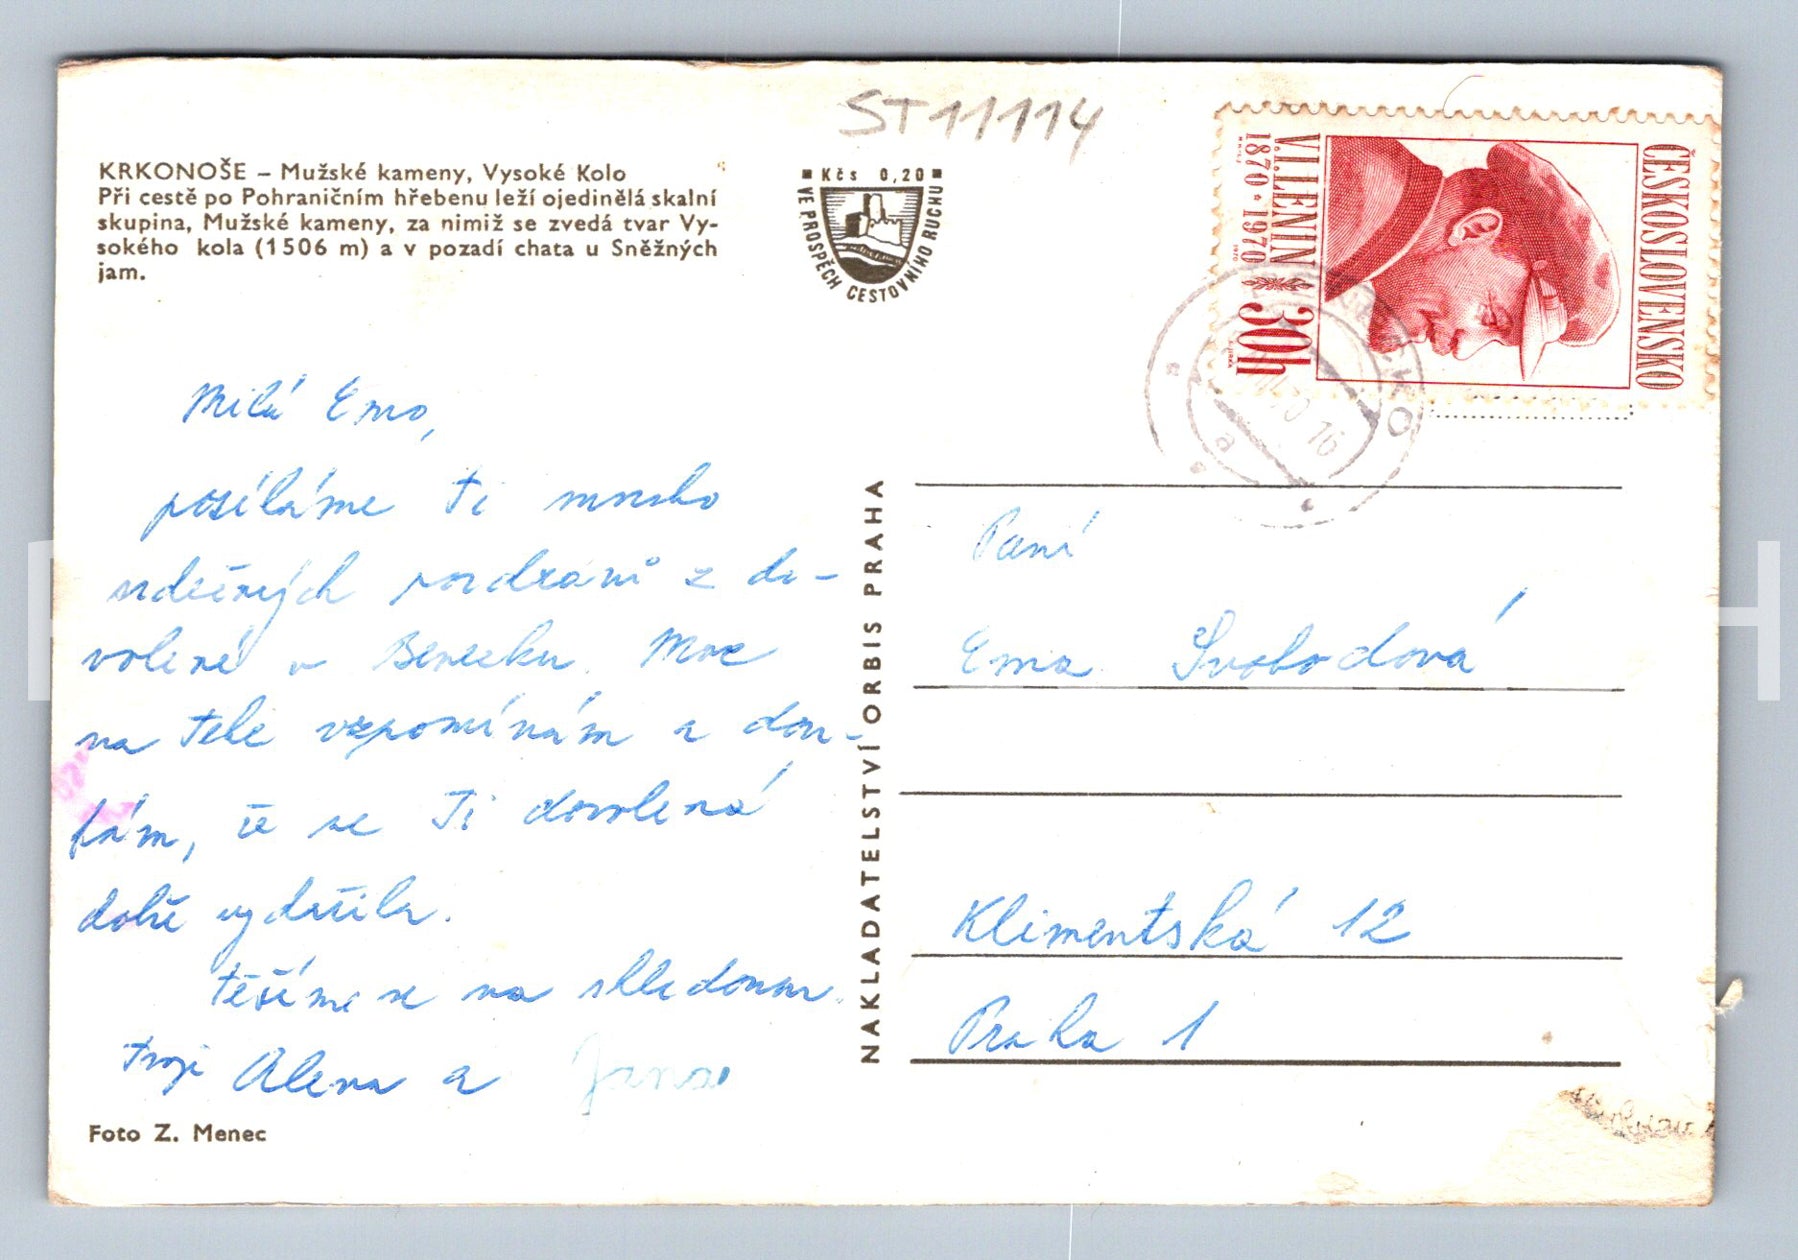 ST11114
KRKONOŠE – Mužské kameny, Vysoké Kolo
Při cestě po Pohraničním hřebenu leží ojedinělá skalní
skupina, Mužské kameny, za nimiž se zvedá tvar Vy-
sokého kola (1506 m) a v pozadí chata u Sněžných
jam.
Kčs 0,20
VE PROSPĚCH CESTOVNÍHO RUCHU
ČESKOSLOVENSKO
V.I.LENIN
1870 • 1970
30h
Milá Emo,
posíláme Ti mnoho
srdečných pozdravů z do-
volené v Benecku. Moc
na Tebe vzpomínám a dou-
fám, že se Ti dovolená
dobře vydařila.
Těšíme se na shledanou
tvoji Alena a Jana
Foto Z. Menec
NAKLADATELSTVÍ ORBIS PRAHA
Paní
Ema Svobodová
Klimentská 12
Praha 1